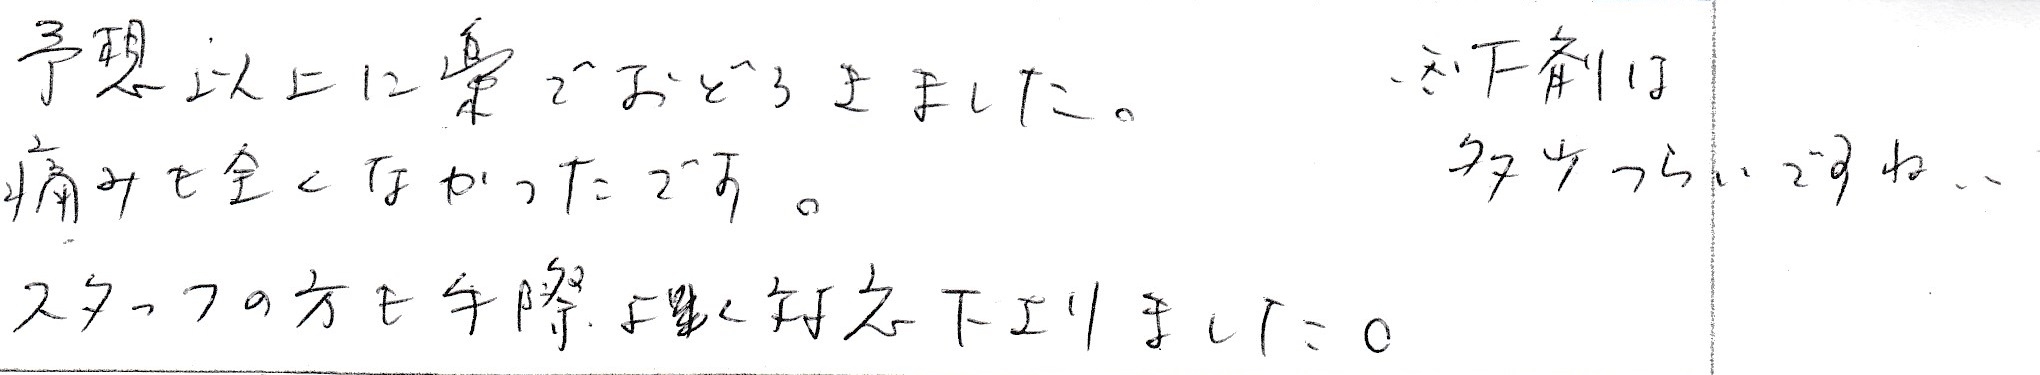 予想以上に楽でおどろきました。
痛みも全くなかったです。
スタッフの方も手際よく対応下さりました。
下剤は
多少つらいですね…